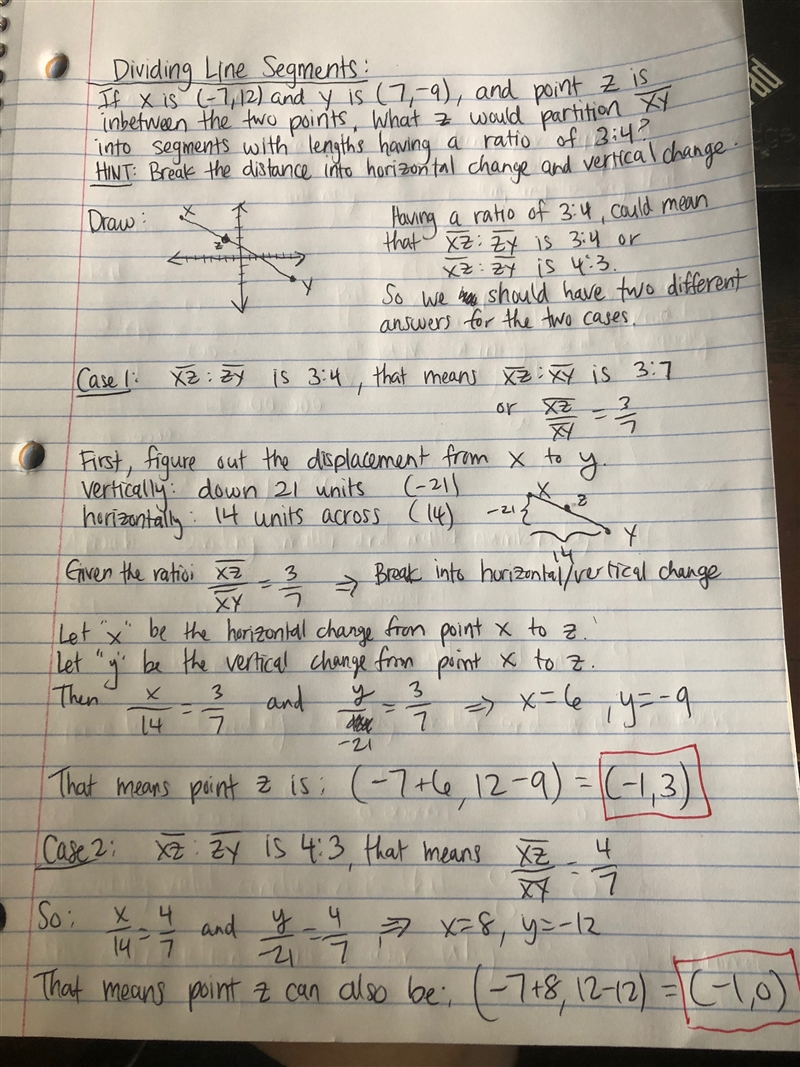 Dividing Line Segments:
If x is (-7,12) and y is (7,-9), and point z is
inbetween the two points, What z would partition X̅Y̅
into segments with lengths having a ratio of 3:4?
HINT: Break the distance into horizontal change and vertical change.
Draw:
X
z
Y
Having a ratio of 3:4, could mean
that X̅Z̅ : Z̅Y̅ is 3:4 or
X̅Z̅ : Z̅Y̅ is 4:3.
So we should have two different
answers for the two cases.
Case 1: X̅Z̅ : Z̅Y̅ is 3:4, that means X̅Z̅ : X̅Y̅ is 3:7
or X̅Z̅/X̅Y̅ = 3/7
First, figure out the displacement from x to y.
vertically: down 21 units (-21)
horizontally: 14 units across (14)
X
z
Y
-21
14
Given the ratio: X̅Z̅/X̅Y̅ = 3/7 ⇒ Break into horizontal/vertical change
Let "x" be the horizontal change from point x to z.
Let "y" be the vertical change from point x to z.
Then x/14 = 3/7 and y/-21 = 3/7 ⇒ x=6, y=-9
That means point z is: (-7+6, 12-9) = (-1,3)
Case 2: X̅Z̅ : Z̅Y̅ is 4:3, that means X̅Z̅/X̅Y̅ = 4/7
So: x/14 = 4/7 and y/-21 = 4/7 ⇒ x=8, y=-12
That means point z can also be: (-7+8, 12-12) = (-1,0)